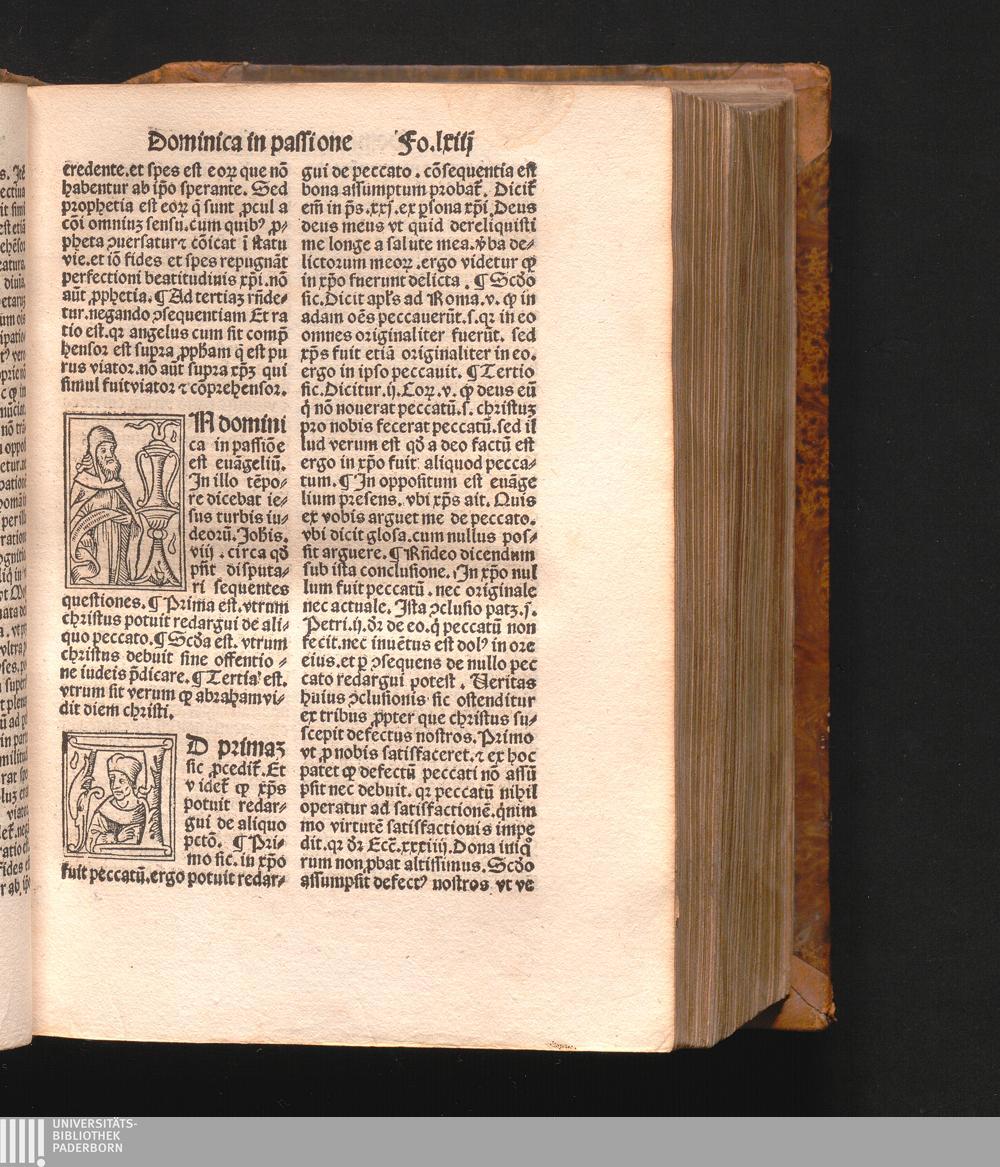 Dominica in passione Fo.lxiiij
credente.et spes est eoꝝ que nō
habentur ab ip̄o sperante. Sed
prophetia est eoꝝ q̄ sunt ꝓcul a
cōi omniuꝫ sensu.cum quibꝰ ꝓ⸗
pheta ꝯuersatur⁊ cōicat ī statu
vie.et iō fides et spes repugnāt
perfectioni beatitudinis xp̄i.nō
aūt ꝓphetia.¶ Ad tertiaꝫ rn̄de⸗
tur.negando ꝯsequentiam Et ra
tio est.qꝛ angelus cum sit comp̄
hensor est supra ꝓpham q̄ est pu
rus viator.nō aūt supra xp̄ꝫ qui
simul fuitviator ⁊ cōprehensor.
IN domini
ca in passiōe
est euāgeliū.
In illo tēpo⸗
re dicebat ie⸗
sus turbis iu⸗
deorū.Johis.
viij . circa qđ
pn̄t disputa⸗
ri sequentes
questiones.¶ Prima est.vtrum
christus potuit redargui de ali⸗
quo peccato.¶ Scđa est. vtrum
christus debuit sine offentio ⸗
ne iudeis p̄dicare.¶ Tertia est.
vtrum sit verum ꝙ abraham vi⸗
dit diem christi.
AD primaꝫ
sic ꝓcedit̄.Et
videt̄ ꝙ xp̄s
potuit redar⸗
gui de aliquo
pctō. ¶ Pri⸗
mo sic. in xp̄o
fuit peccatū.ergo potuit redar⸗
gui de peccato . cōsequentia est
bona assumptum probat̄. Dicit̄
em̄ in p̄s.xxj.ex ꝑsona xp̄i.Deus
deus meus vt quid dereliquisti
me longe a salute mea.v̄ba de⸗
lictorum meoꝝ.ergo videtur ꝙ
in xp̄o fuerunt delicta . ¶ Scđo
sic.Dicit apl̄s ad Roma.v. ꝙ in
adam oēs peccauerūt.s.qꝛ in eo
omnes originaliter fuerūt. sed
xp̄s fuit etiā originaliter in eo.
ergo in ipso peccauit. ¶ Tertio
sic.Dicitur.ij.Coꝝ.v.ꝙ deus eū
q̄ nō nouerat peccatū.s. christuꝫ
pro nobis fecerat peccatū.sed il
lud verum est qđ a deo factū est
ergo in xp̄o fuit aliquod pecca⸗
tum.¶ In oppositum est euāge
lium presens. vbi xp̄s ait. Quis
ex vobis arguet me de peccato.
vbi dicit glosa.cum nullus pos⸗
sit arguere.¶ Rn̄deo dicendum
sub ista conclusione. In xp̄o nul
lum fuit peccatū . nec originale
nec actuale. Ista ꝯclusio patꝫ.j.
Petri.ij.dr̄ de eo.q̄ peccatū non
fecit.nec inuētus est dolꝰ in ore
eius.et ꝑ ꝯsequens de nullo pec
cato redargui potest . Veritas
huius ꝯclusionis sic ostenditur
ex tribus ꝓpter que christus su⸗
scepit defectus nostros.Primo
vt ꝓ nobis satisfaceret.⁊ ex hoc
patet ꝙ defectū peccati nō assū
psit nec debuit. qꝛ peccatū nihil
operatur ad satisfactionē.qīnim
mo virtutē satisfactionis impe
dit.qꝛ dr̄ Eccī.xxxiiij.Dona iniq̊
rum non ꝓbat altissimus.Scđo
assumpsit defectꝰ nostros vt ve
UNIVERSITÄTS-
BIBLIOTHEK
PADERBORN